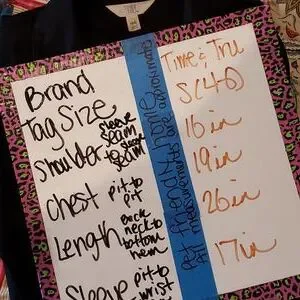 Brand
Time & Tru
Tag Size
S(4-6)
Shoulder sleeve seam to sleeve seam
16 in
Chest pit to pit
19 in
Length back neck to bottom hem
26 in
Sleeve pit to wrist
17 in
Pet friendly home
All measurements are approximate